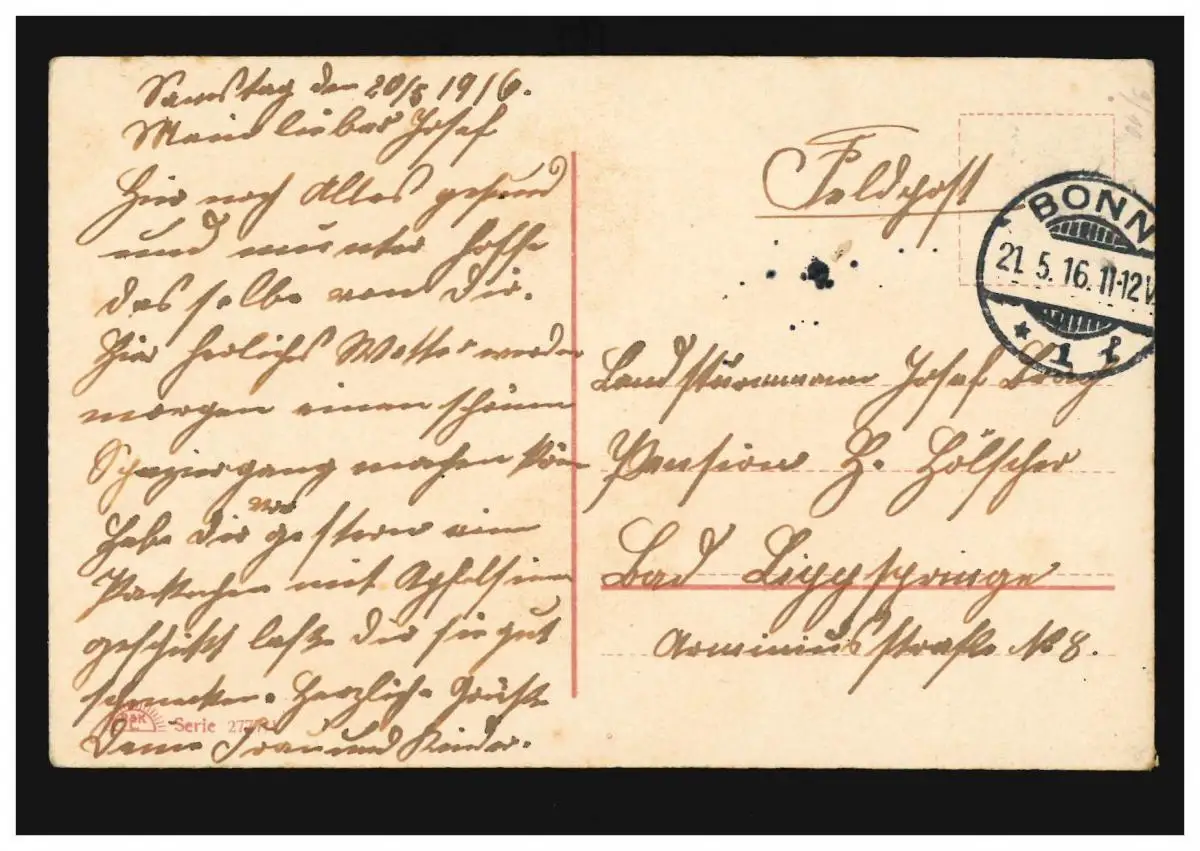 Samstag den 20/5 1916.
Mein lieber Josef
Hier noch Alles gesund
und munter hoffe
das selbe von Dir.
Hier herliches Wetter werde
morgen einen schönen
Spaziergang machen
Habe Dir vor gestern ein
Packchen mit Apfelsinen
geschikt laße Dir sie gut
schmecken. Herzliche Grüße
Deine Frau und Kinder.
Serie
Feldpost
BONN
21.5.16.11-12V.
* 1 f
Landsturmmann Josef
Pension H. Hölscher
Bad Lippspringe
Arminius straße No 8.